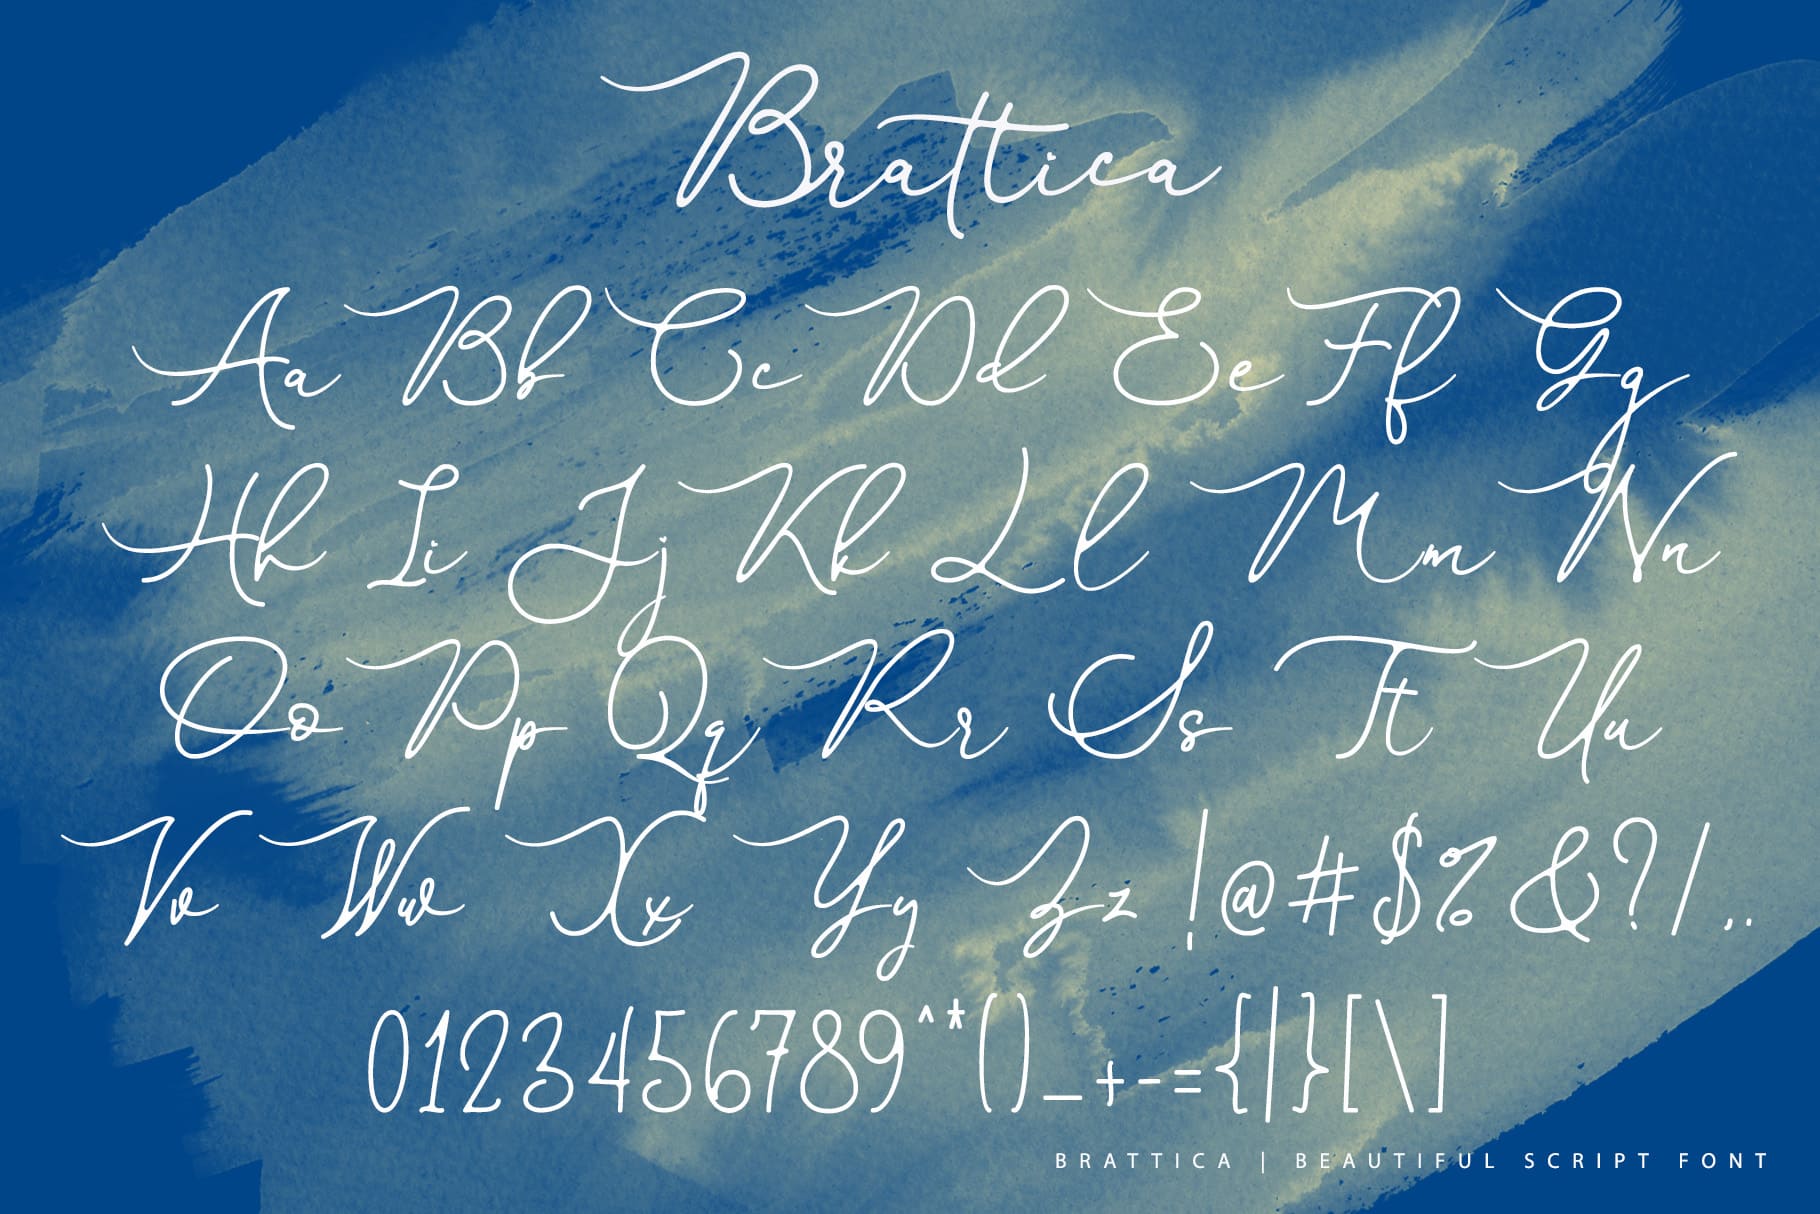 Brattica
Aa Bb Cc Dd Ee Ff Gg
Hh Ii Jj Kk Ll Mm Nn
Oo Pp Qq Rr Ss Tt Uu
Vv Ww Xx Yy Zz !@#$%&?/,.
0123456789^*()_+-={|}[\]
BRATTICA | BEAUTIFUL SCRIPT FONT